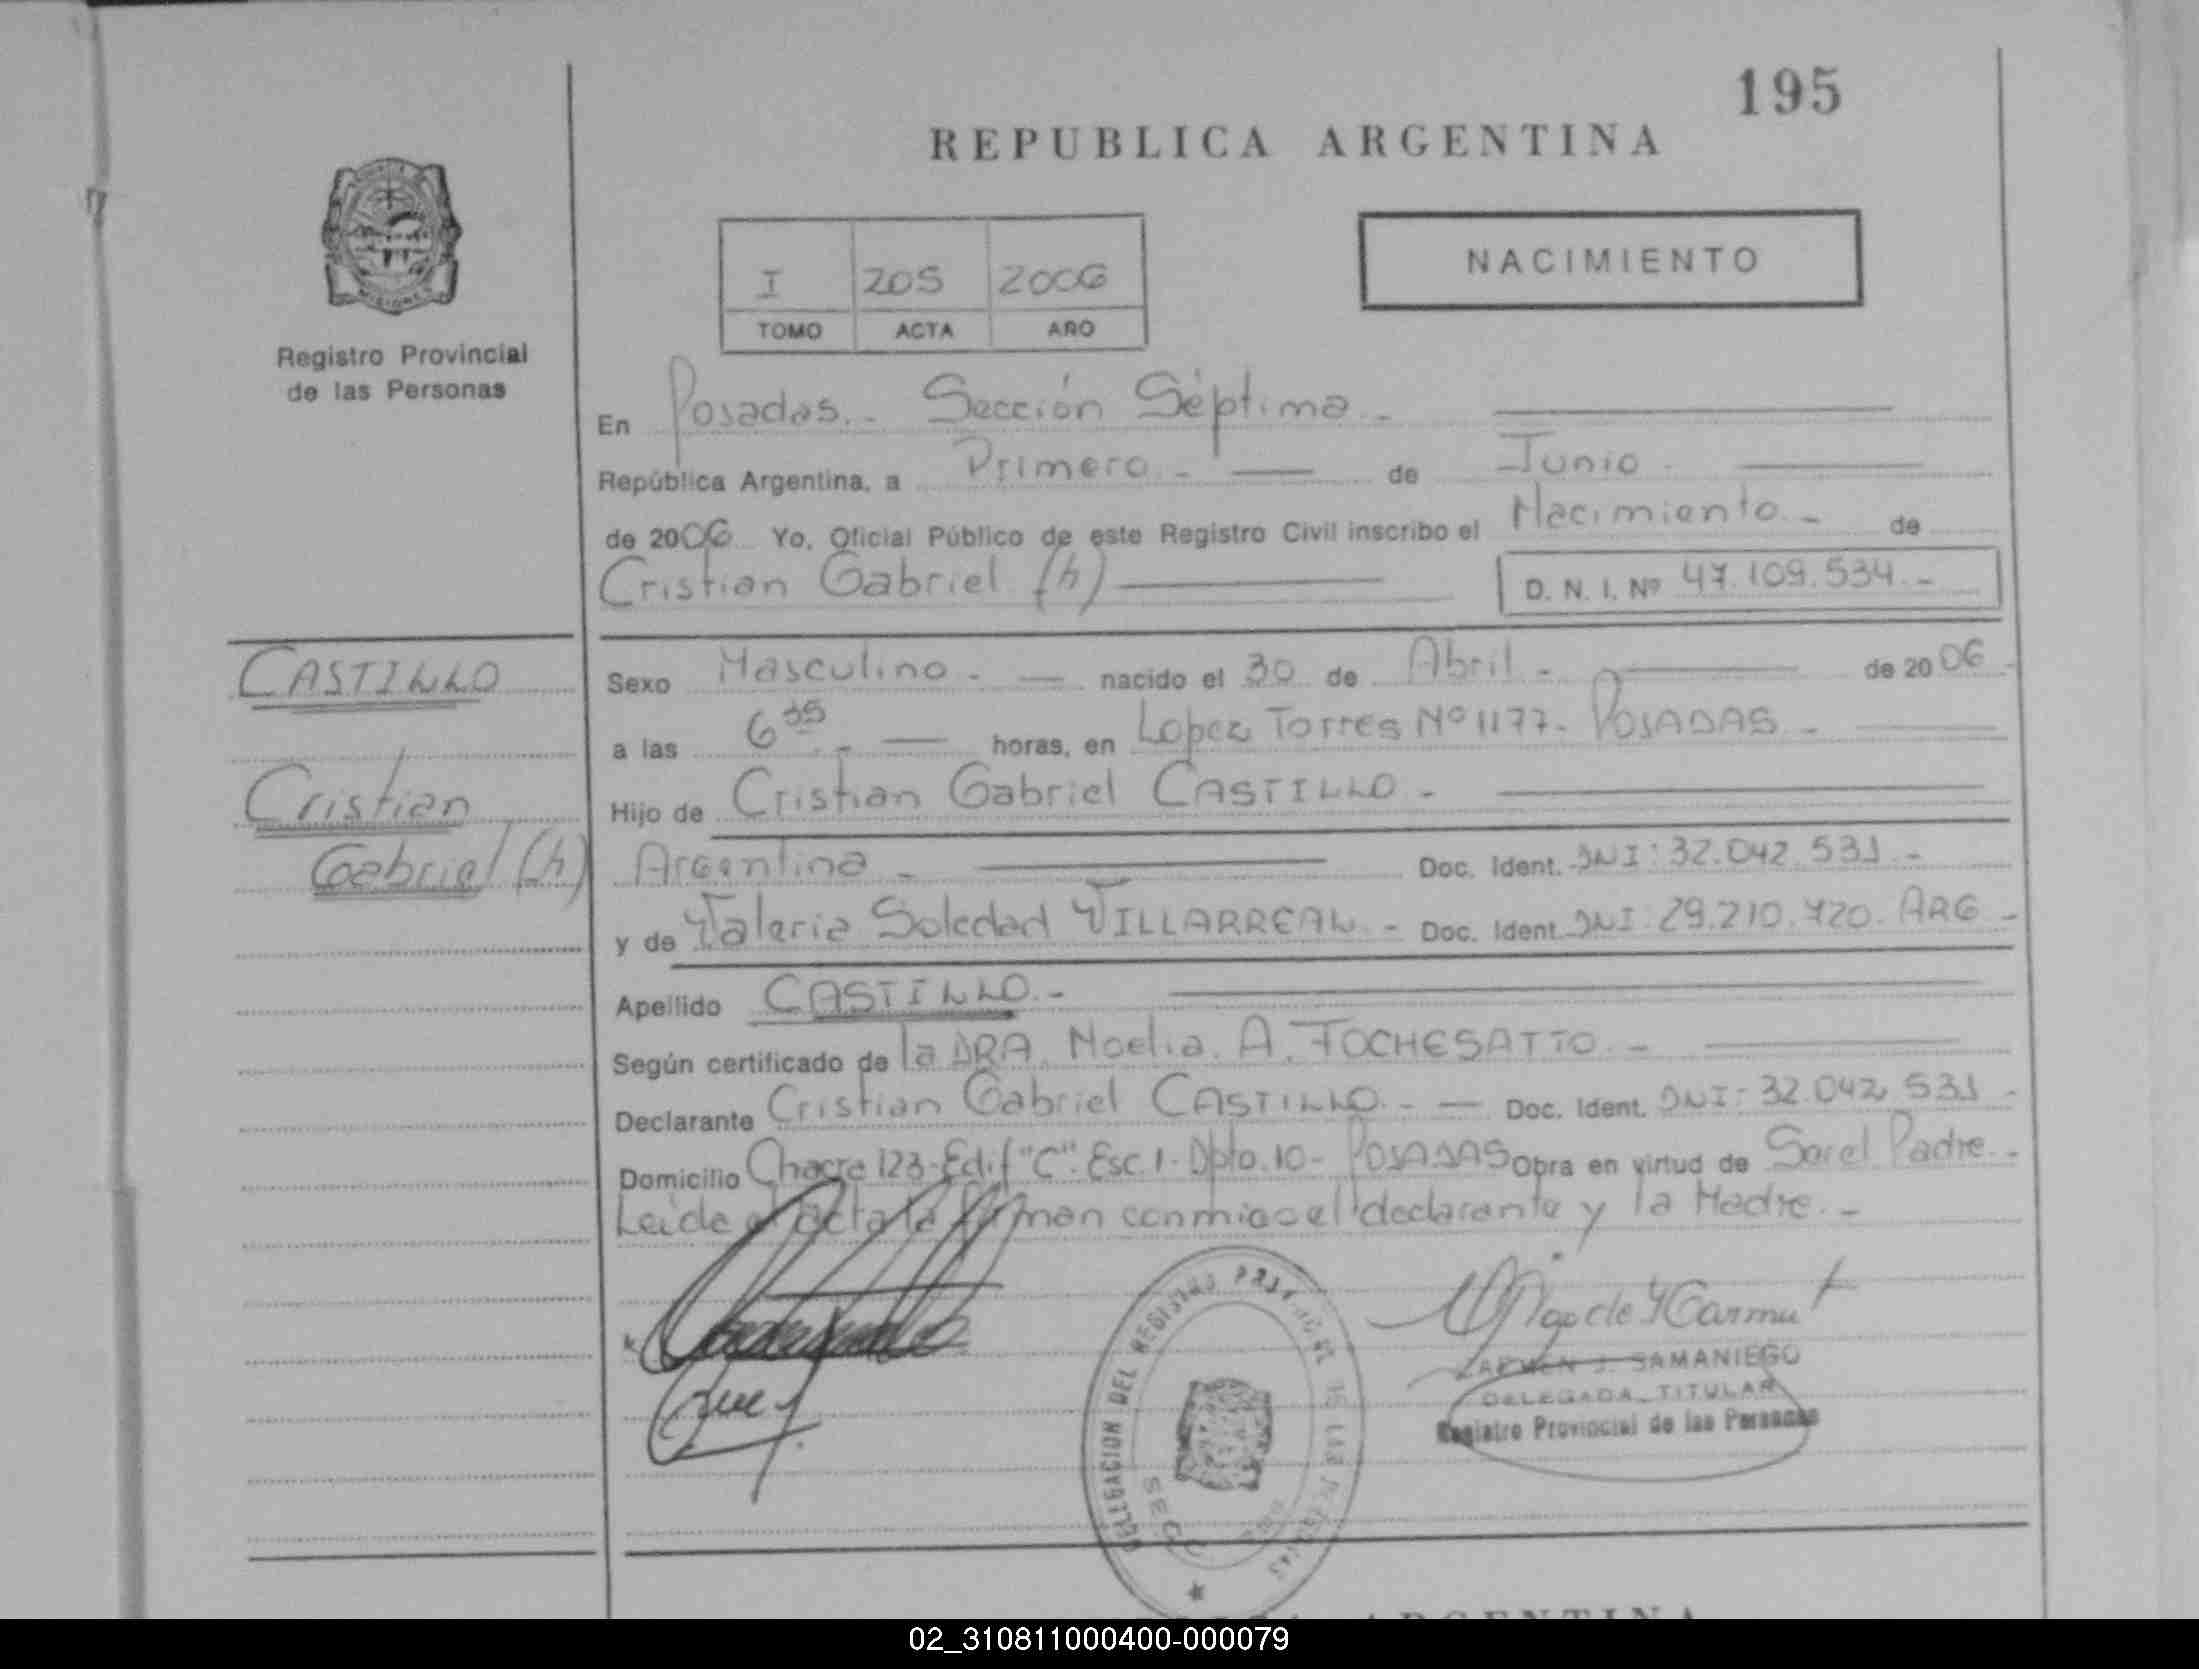 195
REPUBLICA ARGENTINA
NACIMIENTO
I 205 2006
TOMO ACTA AÑO
Registro Provincial
de las Personas
En Posadas.- Sección Séptima.-
República Argentina, a Primero.- de Junio
de 2006 Yo, Oficial Público de este Registro Civil inscribo el Nacimiento.- de
Cristian Gabriel (h)
D. N. I. Nº 47.109.534.-
CASTILLO
Cristian
Gabriel (h)
Sexo Masculino.- nacido el 30 de Abril.- de 2006.-
a las 6 35.- horas, en Lopez Torres Nº 1177- POSADAS.-
Hijo de Cristian Gabriel CASTILLO.-
Argentina.- Doc. Ident. DNI: 32.042.531.-
y de Valeria Soledad VILLARREAL.- Doc. Ident. DNI: 29.210.720. ARG-
Apellido CASTILLO.-
Según certificado de la DRA. Noelia. A. TOCHESATTO.-
Declarante Cristian Gabriel CASTILLO.- Doc. Ident. DNI: 32.042.531-
Domicilio Chacra 123-Edif "C". Esc. 1- Dpto. 10- POSADAS Obra en virtud de Ser el Padre.-
Leida el acta la firman conmigo el declarante y la Madre.-
DELEGACION DEL REGISTRO PROVINCIAL DE LAS PERSONAS
CARMEN J. SAMANIEGO
DELEGADA TITULAR
Registro Provincial de las Personas
ARGENTINA
02_310811000400-000079